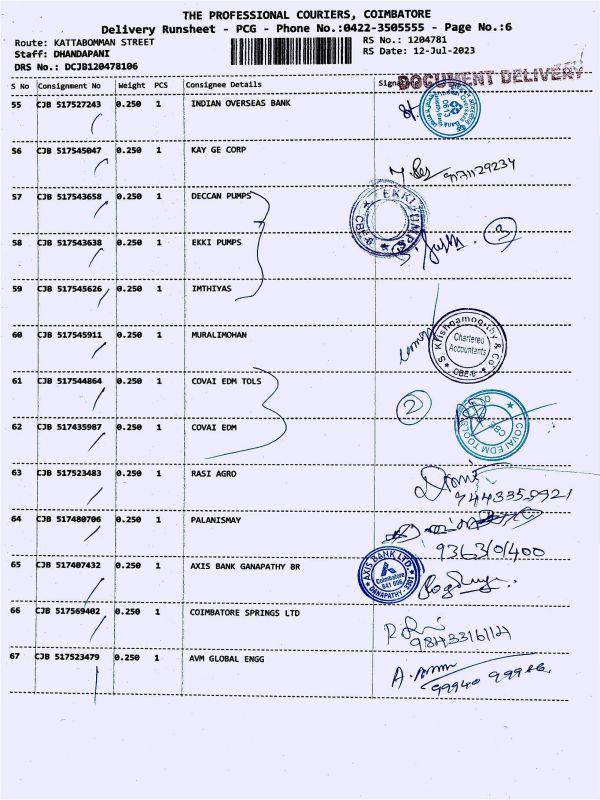 THE PROFESSIONAL COURIERS, COIMBATORE
Delivery Runsheet - PCG - Phone No.:0422-3505555 - Page No.:6
Route: KATTABOMMAN STREET
RS No.: 1204781
Staff: DHANDAPANI
RS Date: 12-Jul-2023
DRS No.: DCJB120478106
DOCUMENT DELIVERY
S No Consignment No Weight PCS Consignee Details Signature
55 CJB 517527243 0.250 1 INDIAN OVERSEAS BANK
56 CJB 517545047 0.250 1 KAY GE CORP
9171129234
57 CJB 517543658 0.250 1 DECCAN PUMPS
EKKI PUMPS
CBE-6
58 CJB 517543638 0.250 1 EKKI PUMPS
3
59 CJB 517545626 0.250 1 IMTHIYAS
60 CJB 517545911 0.250 1 MURALIMOHAN
S Krishnamoorthy & Co
Chartered
Accountants
CBE-6
61 CJB 517544864 0.250 1 COVAI EDM TOLS
2
COVAI EDM TOOLS
CBE
62 CJB 517435987 0.250 1 COVAI EDM
63 CJB 517523483 0.250 1 RASI AGRO
9443358921
64 CJB 517480706 0.250 1 PALANISMAY
9363101400
65 CJB 517407432 0.250 1 AXIS BANK GANAPATHY BR
AXIS BANK LTD.
Coimbatore
641 006
GANAPATHY
66 CJB 517569402 0.250 1 COIMBATORE SPRINGS LTD
67 CJB 517523479 0.250 1 AVM GLOBAL ENGG